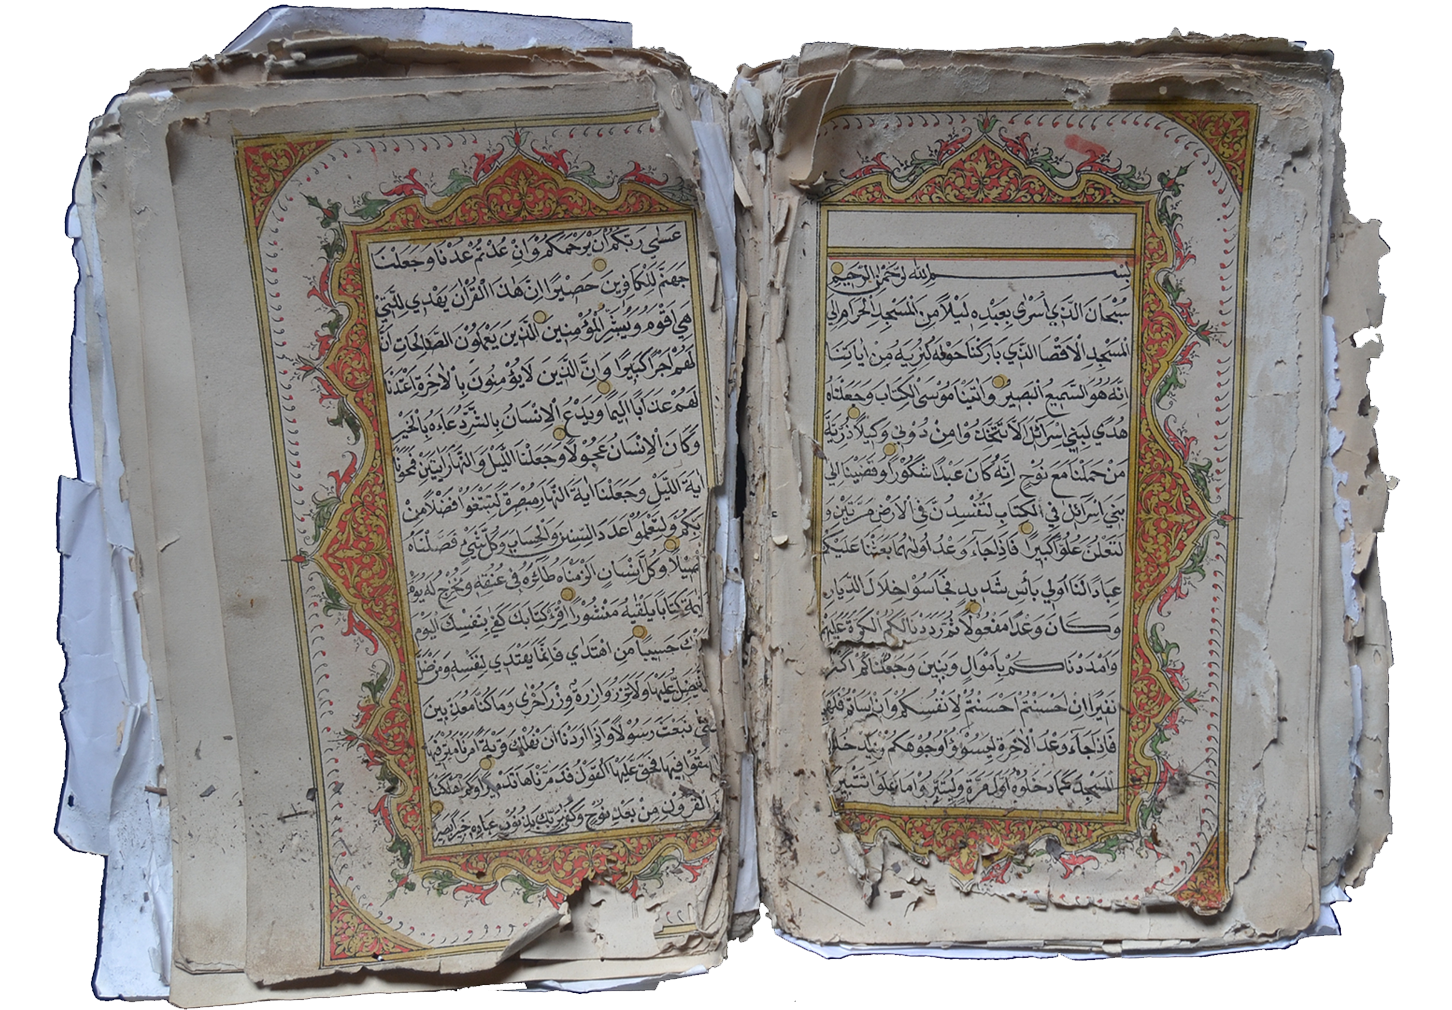 بسم الله الرحمن الرحيم
سبحان الذي اسرى بعبده ليلا من المسجد الحرام الى
المسجد الاقصا الذي باركنا حوله لنريه من اياتنا
انه هو السميع البصير واتينا موسى الكتاب وجعلناه
هدى لبني اسرائل الا تتخذوا من دوني وكيلا ذرية
من حملنا مع نوح انه كان عبدا شكورا وقضينا الى
بني اسرائل في الكتاب لتفسدن في الارض مرتين و
لتعلن علوا كبيرا فاذا جاء وعد اوليهما بعثنا عليكم
عبادا لنا اولي بأس شديد فجاسوا خلال الديار
وكان وعدا مفعولا ثم رددنا لكم الكرة عليهم
وامددناكم باموال وبنين وجعلناكم اكثر
نفيرا ان احسنتم احسنتم لانفسكم وان اسأتم فلها
فاذا جاء وعد الاخرة ليسوؤا وجوهكم وليدخلوا
المسجد كما دخلوه اول مرة وليتبروا ما علوا تتبيرا
عسى ربكم ان يرحمكم وان عدتم عدنا وجعلنا
جهنم للكافرين حصيرا ان هذا القران يهدي للتي
هي اقوم ويبشر المؤمنين الذين يعملون الصالحات ان
لهم اجرا كبيرا وان الذين لا يؤمنون بالاخرة اعتدنا
لهم عذابا اليما ويدع الانسان بالشر دعاءه بالخير
وكان الانسان عجولا وجعلنا الليل والنهار ايتين فمحونا
اية الليل وجعلنا اية النهار مبصرة لتبتغوا فضلا من
ربكم ولتعلموا عدد السنين والحساب وكل شيئ فصلناه
تفصيلا وكل انسان الزمناه طائره في عنقه ونخرج له يوم
القيمة كتابا يلقيه منشورا اقرء كتابك كفى بنفسك اليوم
عليك حسيبا من اهتدي فانما يهتدي لنفسه ومن ضل
فانما يضل عليها ولا تزر وازرة وزر اخرى وما كنا معذبين
حتى نبعث رسولا واذا اردنا ان نهلك قرية امرنا مترفيها
ففسقوا فيها فحق عليها القول فدمرناها تدميرا وكم اهلكنا
من القرون من بعد نوح وكفى بربك بذنوب عباده خبيرا بصيرا